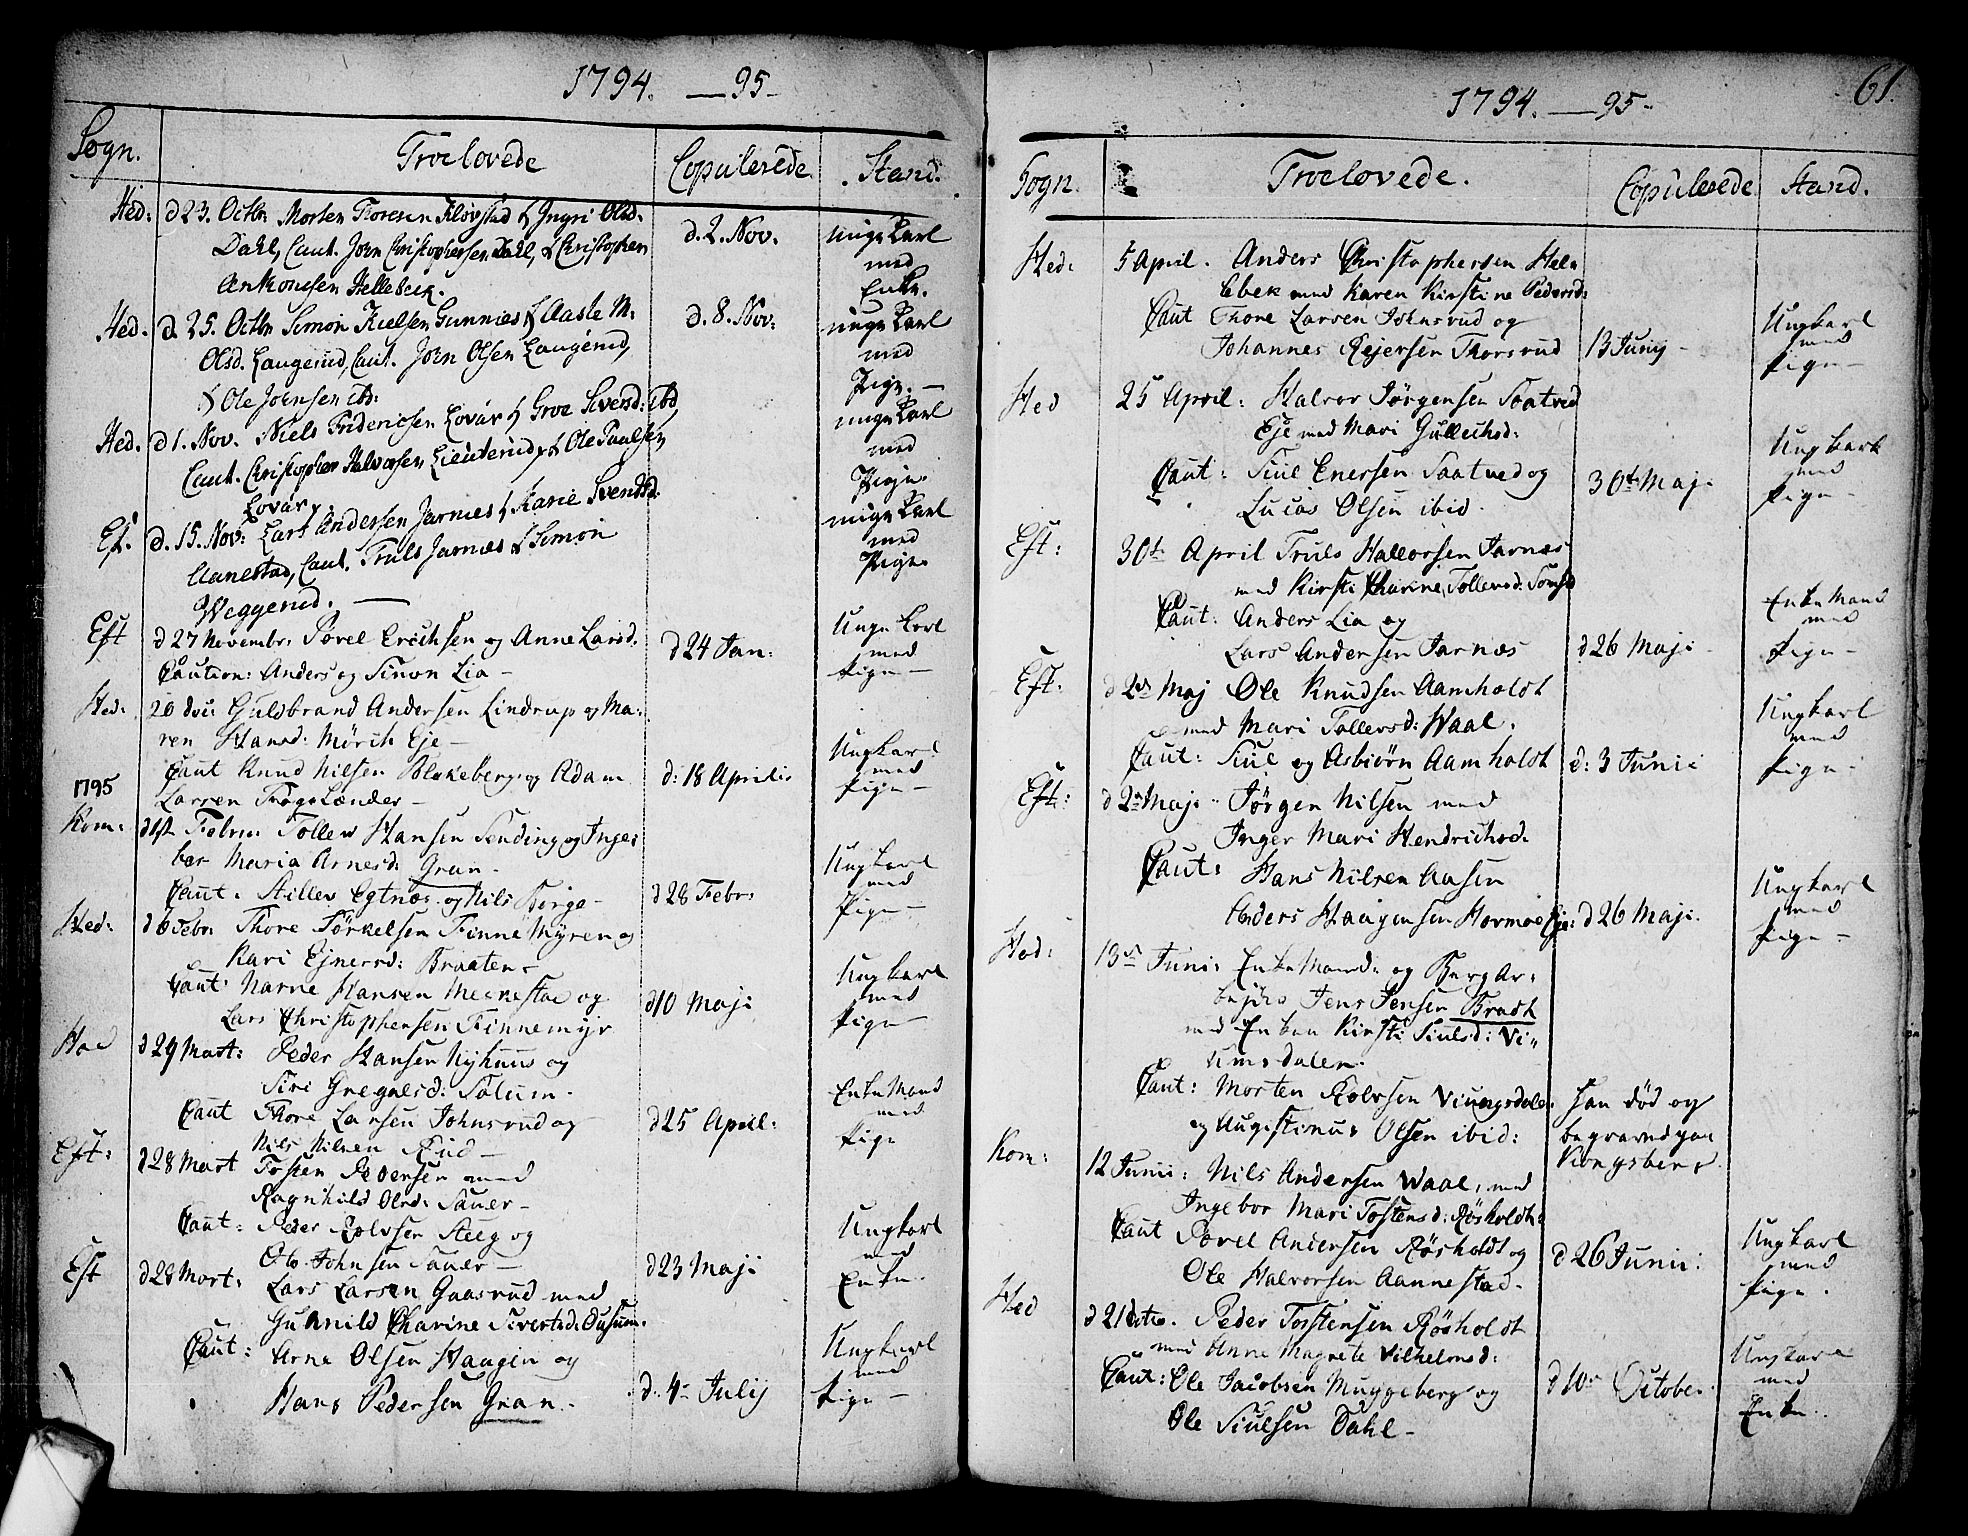 1794. — 95-
Sogn. Troelovede Copulerede. Stand.
Hed: d 23. Octbr Morten Thoresen Kløvstad & Ingri Olsd.
Dahl, Caut. Jørn Christophersen Dahl, & Christopher
Anthonisen Hellebech.
d. 2. Nov.
unge Karl
med
Enke.
Hed. d. 25. Octbr Simon Nielsen Gunnæs & Aasle M.
Olsd. Laugerud, Caut. Jørn Olsen Laugerud,
& Ole Jørnsen ibd:
d. 8. Nov:
unge Karl
med
Pige. —
Hed. d 1. Nov. Niels Friderichsen Lovår & Groe Siversd: ibd,
Caut. Christopher Halvorsen Lieuterud, & Ole Paulsen
Lovår.
unge Karl
med
Pige.
Ef. d. 15. Nov: Lars Andersen Jarnæs & Karie Svendsd.
Aanestad, Caut. Truls Jarnæs & Simon
Weggerud. —
unge Karl
med
Pige.
Eft d 27 Novembr: Povel Erichsen og Anne Larsd.
Caution: Anders og Simon Lia -
d 24 Jan:
Unge Karl
med
Pige —
Hed: 20 Guldbrand Andersen Lindrup og Ma-
ren Hansd: Mörch Eje —
Caut Knud Nilsen Blekeberg og Adam
Larsen Fogslænder —
d: 18 Aprilis
Ungkarl
med
Pige —
1795
Kom: d 1st Febru: Tollev Hansen Sending og Inge-
bor Maria Arnesd: Gran —
Caut: Stillev Egtnæs og Nils Berge —
d 28 Febr:
Ungkarl
med
Pige —
Hed: d 6 Febr: Thore Törkelsen Finne Myren og
Kari Ejnersd: Braaten -
Caut: Narne Hansen Meenstae og
Lars Christophersen Finnemyr
d 10 Maji
Ungkarl
med
Pige —
Hed d 29 Mart: Peder Hansen Nyhuus og
Siri Gregaersd: Solum -
Caut Thore Larsen Johnsrud og
Nils Nilsen Rud —
d 25 April:
Enke Mand
med
Pige
Eft: d 28 Mart Tosten Pedersen med
Ragnhild Olsd: Sauer —
Caut: Peder Rolvsen Steeg og
Ole Johnsen Sauer —
d 23 Maji
Ungkarl
med
Enke.
Eft d 28 Mart: Lars Larsen Gaasrud med
Gunnild Charine Sivertsd: Susum.
Caut: Arne Olsen Haugen og
Hans Pedersen Gran.
d. 4- Julij
Ungkarl
med
Pige —
1794. — 95. 61.
Sogn. Troelovede. Copulerede Stand.
Hed: 5 April. Anders Christophersen Hel-
Ebek med Karen Kirstine Pedersd:
Caut Thore Larsen Johnsrud og
Johannes Rejersen Thorsrud
13 Junij —
Ungkarl
med
Pige —
Hed 25 April: Halvor Jørgensen Saatved
Eje med Mari Gullechsd:
Caut: Siul Enersen Saatved og
Lucas Olsen ibid.
30t Maji
Ungkarl
med
Pige —
Eft: 30t April Truls Halvorsen Jarnæs
med Kirsti Charine Tollevsd:
Caut: Anders Lia og
Lars Andersen Jarnæs
d 26 Maji
Enke Mand
med
Pige —
Eft: d 2den Maj Ole Knudsen Aamholdt
med Mari Tollevsd: Waal.
Caut: Siul og Asbiørn Aamholdt
d: 3 Junii
Ungkarl
med
Pige —
Eft: d 2den Maj: Jörgen Nilsen med
Inger Mari Hendrichsd:
Caut: Hans Nilsen Aasen
Anders Haagensen Hormoe Eje:
d 26 Maji.
Ungkarl
med
Pige —
Hed: 13de Juni: Enke Mand: og Berg Ar-
bejder Jens Jensen Bradt
med Enken Kirsti Siulsd: Vi-
umsdalen.
Caut: Morten Rolvsen Viungsdalen
og Augustinus Olsen ibid:
Han död og
begravned paa
Kongsberg
Kom: 12 Junii: Nils Andersen Waal, med
Ingebor Mari Tostensd: Røsholdt:
Caut Povel Andersen Røsholdt og
Ole Halvorsen Aannestad.
d 26 Junii:
Ungkarl
med
Pige.
Hed d 21 dito. Peder Torstensen Røsholdt
med Anne Magrete Vilhelmsd:
Caut: Ole Jacobsen Muggeberg og
Ole Siulsen Dahl —
d 10de October.
Ungkarl
med
Enke.